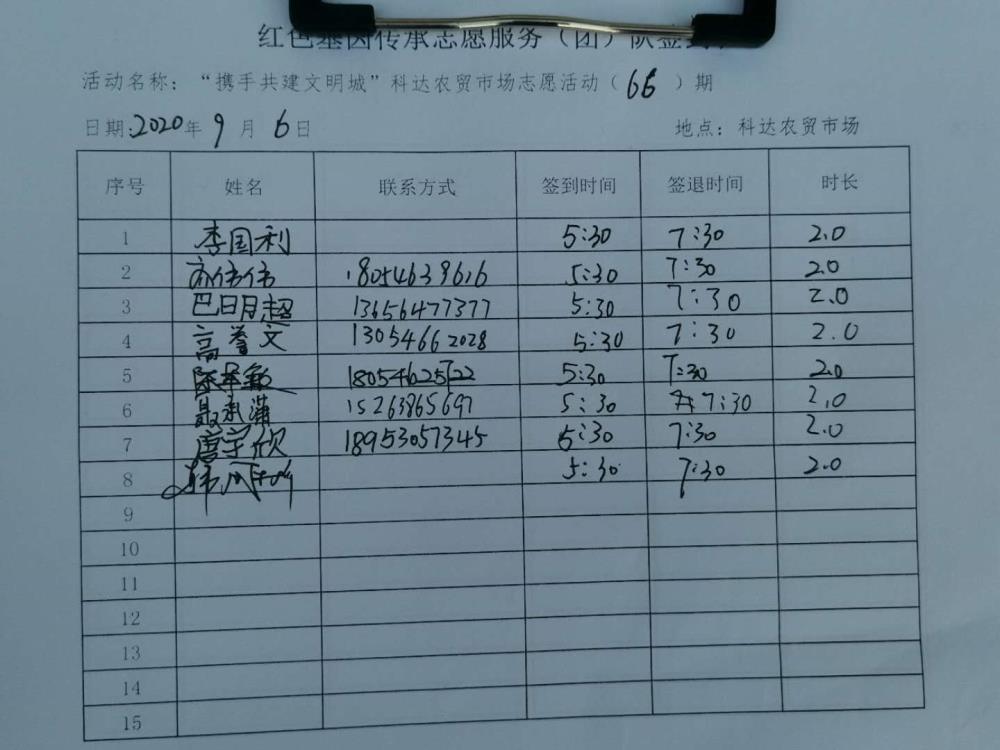 红色基因传承志愿服务（团）队签到
活动名称：“携手共建文明城”科达农贸市场志愿活动（66）期
日期:2020年9月6日 地点：科达农贸市场
序号 姓名 联系方式 签到时间 签退时间 时长
1 李国利 5:30 7:30 2.0
2 伟伟 18054639616 5:30 7:30 2.0
3 巴日月超 13656477377 5:30 7:30 2.0
4 高誉文 13054662028 5:30 7:30 2.0
5 陈 敏 18054625722 5:30 7:30 2.0
6 聂承蒲 15263865697 5:30 7:30 2.0
7 唐宇欣 18953057345 5:30 7:30 2.0
8 韩 5:30 7:30 2.0
9
10
11
12
13
14
15